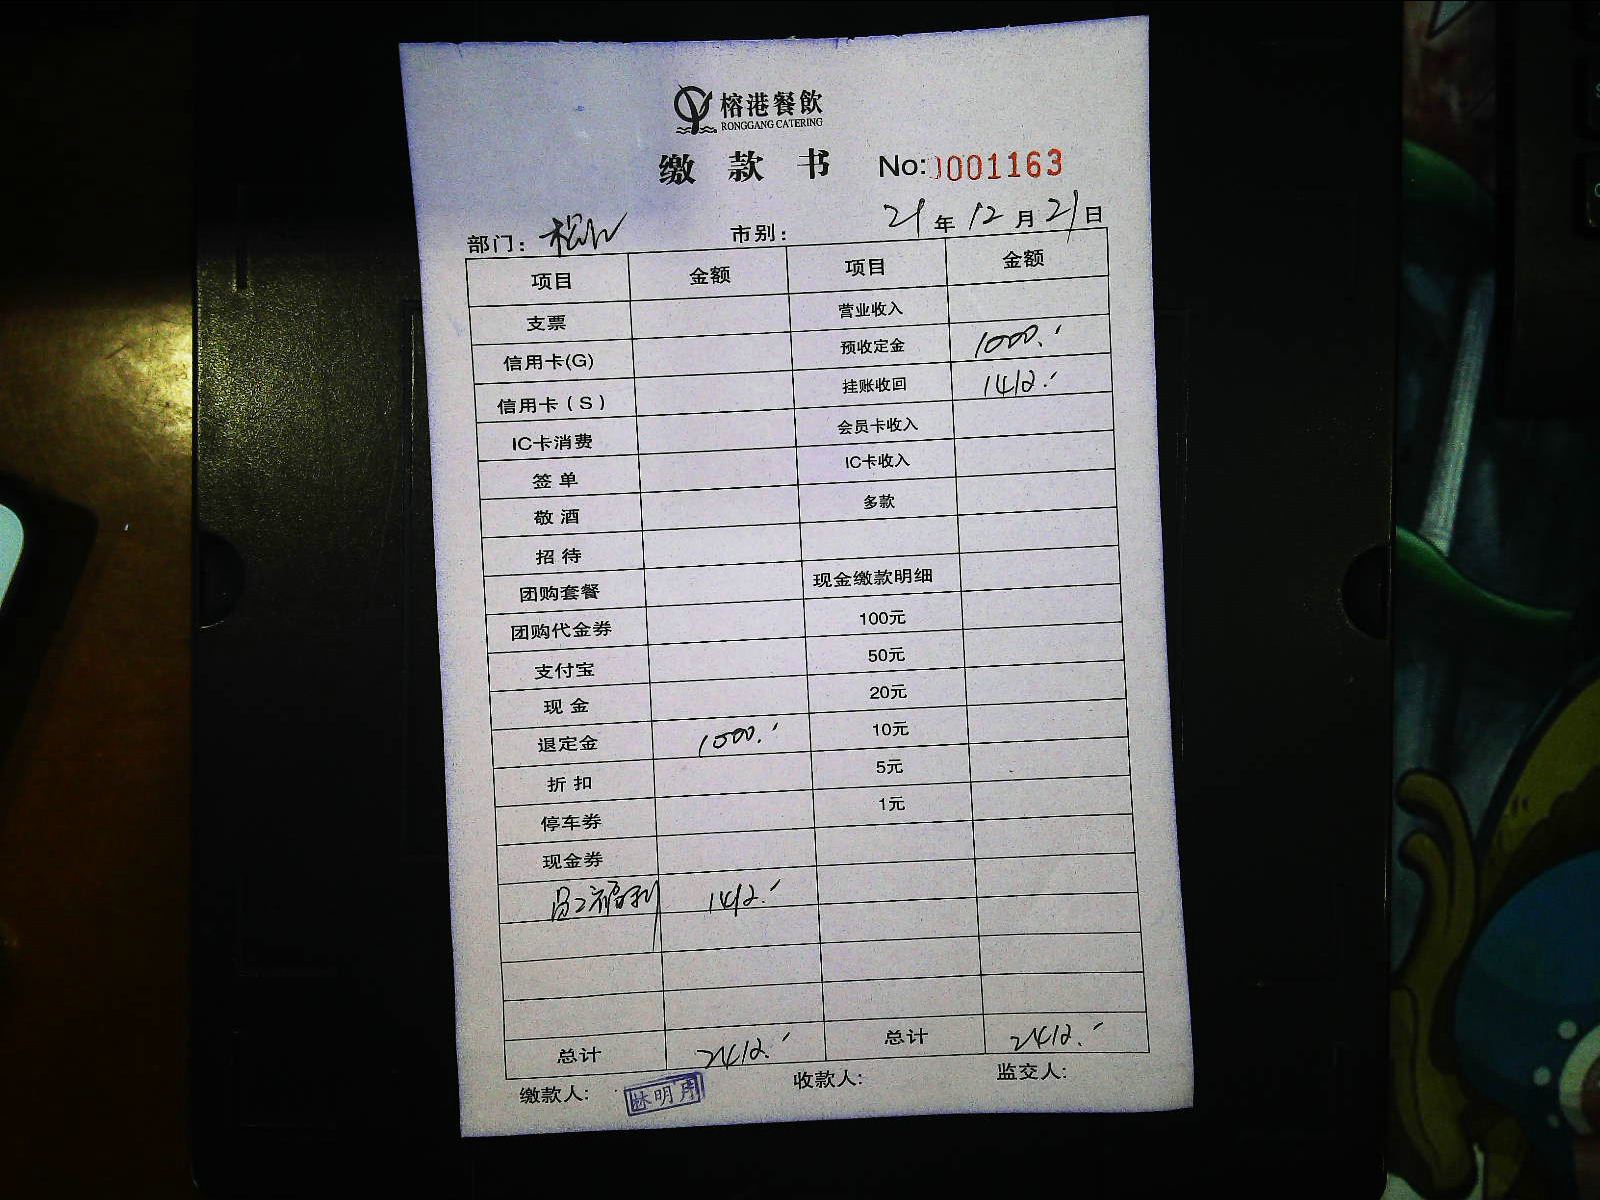 榕港餐飲
RONGGANG CATERING
缴款书 No:0001163
部门： 市别： 21年12月21日
项目 金额 项目 金额
支票 营业收入
信用卡(G) 预收定金 1000.-
信用卡（S） 挂账收回 1412.-
IC卡消费 会员卡收入
签单 IC卡收入
敬酒 多款
招待
团购套餐 现金缴款明细
团购代金券 100元
支付宝 50元
现金 20元
退定金 1000.- 10元
折扣 5元
停车券 1元
现金券
员工福利 1412.-
总计 2412.- 总计 2412.-
缴款人: 林明月 收款人: 监交人: